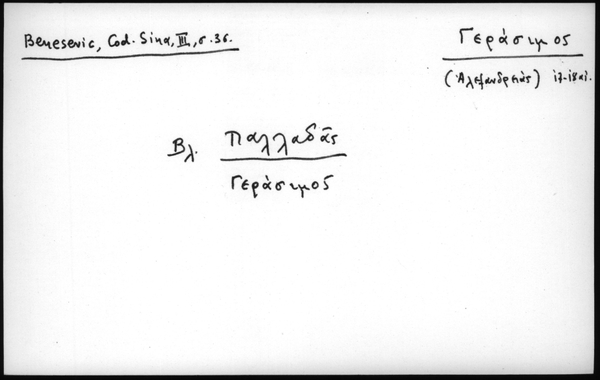 Benesevic, Cod. Sina, III, σ. 36.
Γεράσιμος
(Ἀλεξανδρείας) ιζ-ιη αἰ.
Βλ. Παλλαδᾶς
Γεράσιμος